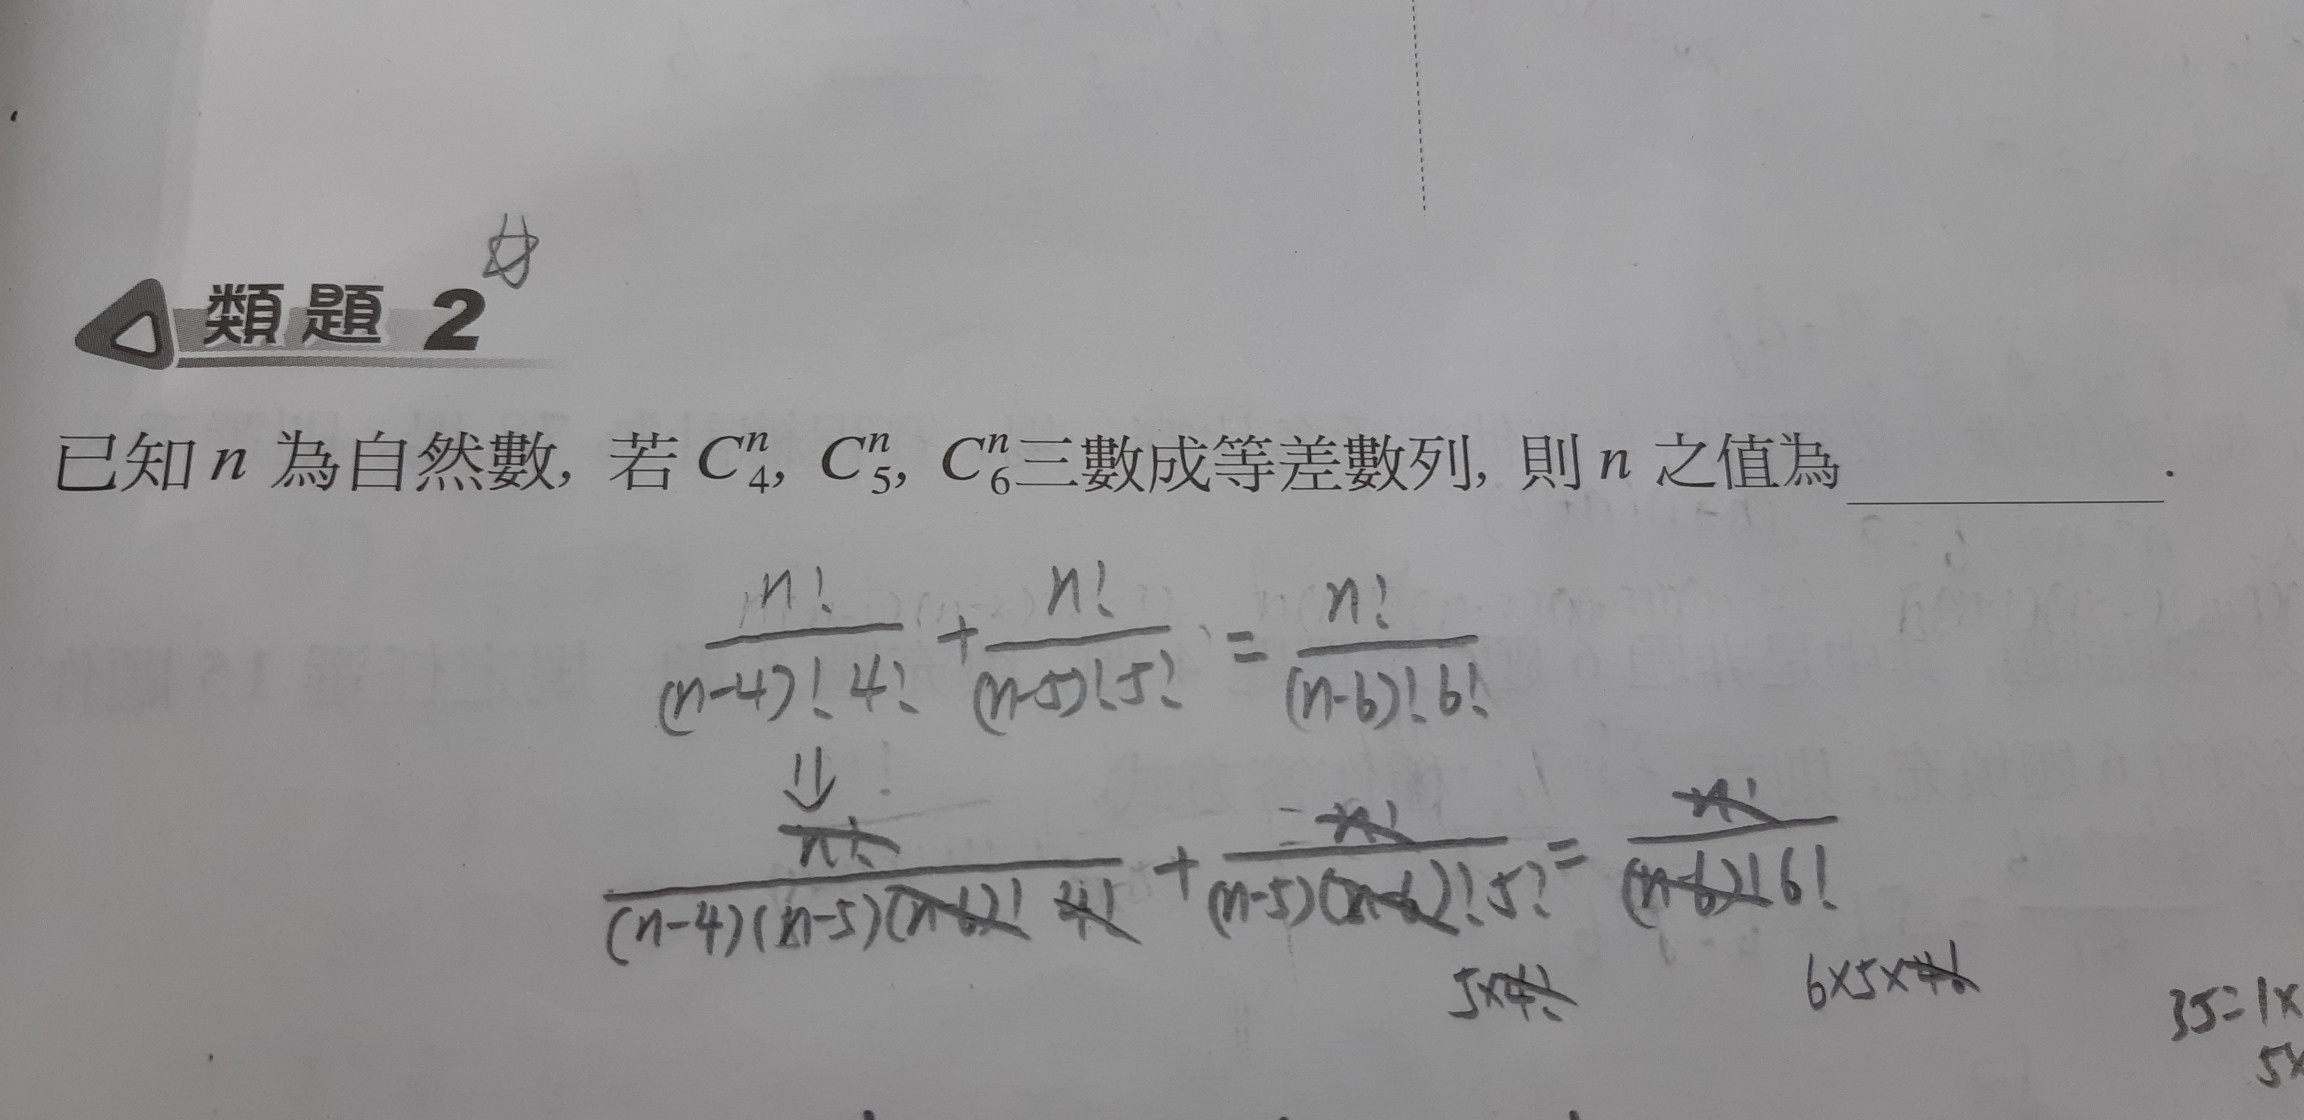 類題 2
已知 n 為自然數, 若 C₄ⁿ, C₅ⁿ, C₆ⁿ 三數成等差數列, 則 n 之值為________.
n!/((n-4)!4!) + n!/((n-5)!5!) = n!/((n-6)!6!)
⇓
n!/((n-4)(n-5)(n-6)! 4!) + n!/((n-5)(n-6)!5!) = n!/((n-6)!6!)
5×4! 6×5×4!
35=1×
5×